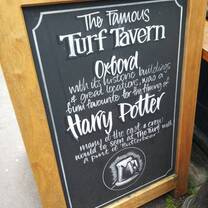 The Famous
Turf Tavern
Oxford
with its historic buildings
& great locations, was a
firm favourite for the filming of
Harry Potter
many of the cast & crew
would be seen at The Turf with
a pint of butterbeer!